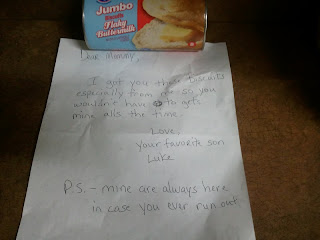 Jumbo
Flaky
Buttermilk
Dear Mommy,
I got you these biscuits
especially from me so you
wouldn't have to
mine alls the time.
Love,
your favorite son
Luke
P.S. - mine are always here
in case you ever run out.